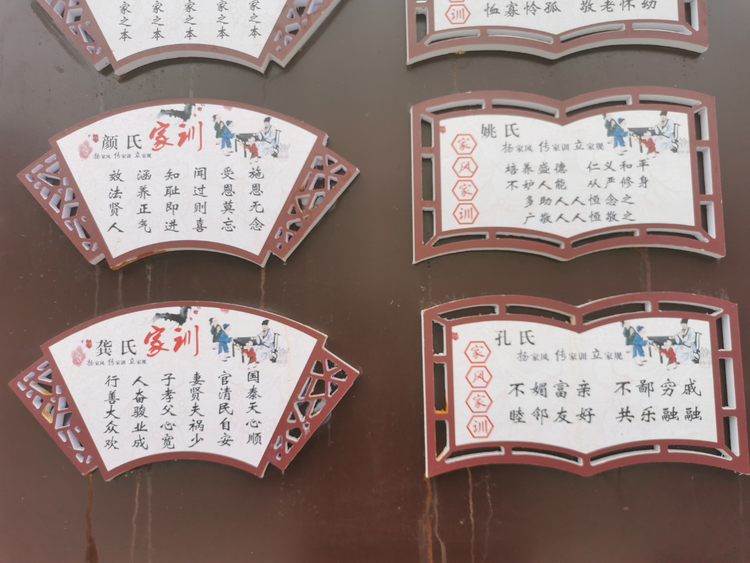 家之本
家之本
家之本
家之本
家之本
家之本
训
恤寡怜孤 敬老怀幼
颜氏家训
扬家风 传家训 立家规
施恩无念
受恩莫忘
闻过则喜
知耻即进
涵养正气
效法贤人
姚氏
家风家训
扬家风 传家训 立家规
培养盛德 仁义和平
不妒人能 从严修身
多助人人恒念之
广敬人人恒敬之
龚氏家训
扬家风 传家训 立家规
国泰天心顺
官清民自安
妻贤夫祸少
子孝父心宽
人奋骏业成
行善大众欢
孔氏
家风家训
扬家风 传家训 立家规
不媚富亲 不鄙穷戚
睦邻友好 共乐融融